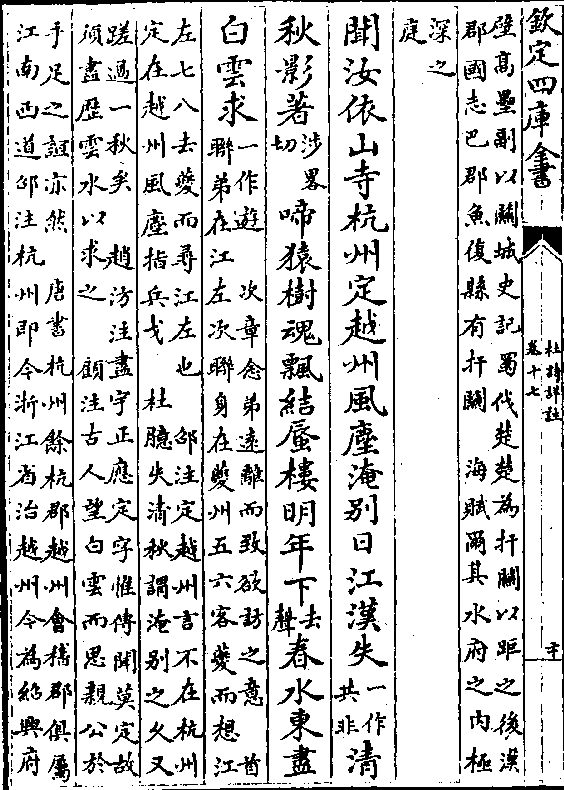 欽定四庫全書
杜詩詳註
卷十七
二十
壁高壘副以關城史記蜀伐楚楚為扞關以距之後漢
郡國志巴郡魚復縣有扞關　海賦爾其水府之內極
深之
庭
聞汝依山寺杭州定越州風塵淹別日江漢失一作共非清
秋影著涉畧切啼猿樹魂飄結蜃樓明年下去聲春水東盡
白雲求一作遊　次章念弟遠離而致欲訪之意首
聯弟在江左次聯身在夔州五六客夔而想江
左七八去夔而尋江左也　邵注定越州言不在杭州
定在越州風塵指兵戈　杜臆失清秋謂淹別之久又
蹉過一秋矣　趙汸注盡字正應定字惟傳聞莫定故
須盡歴雲水以求之　顧注古人望白雲而思親公於
手足之誼亦然　唐書杭州餘杭郡越州會稽郡俱屬
江南西道邵注杭州即今浙江省治越州今為紹興府